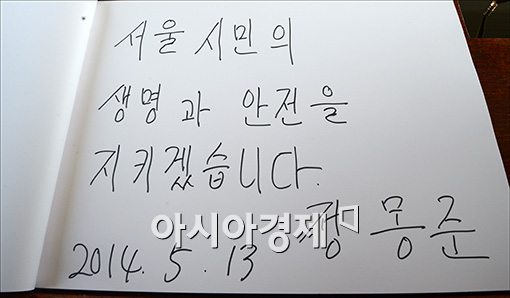 서울 시민의
생명과 안전을
지키겠습니다.
아시아경제
2014. 5. 13 정몽준